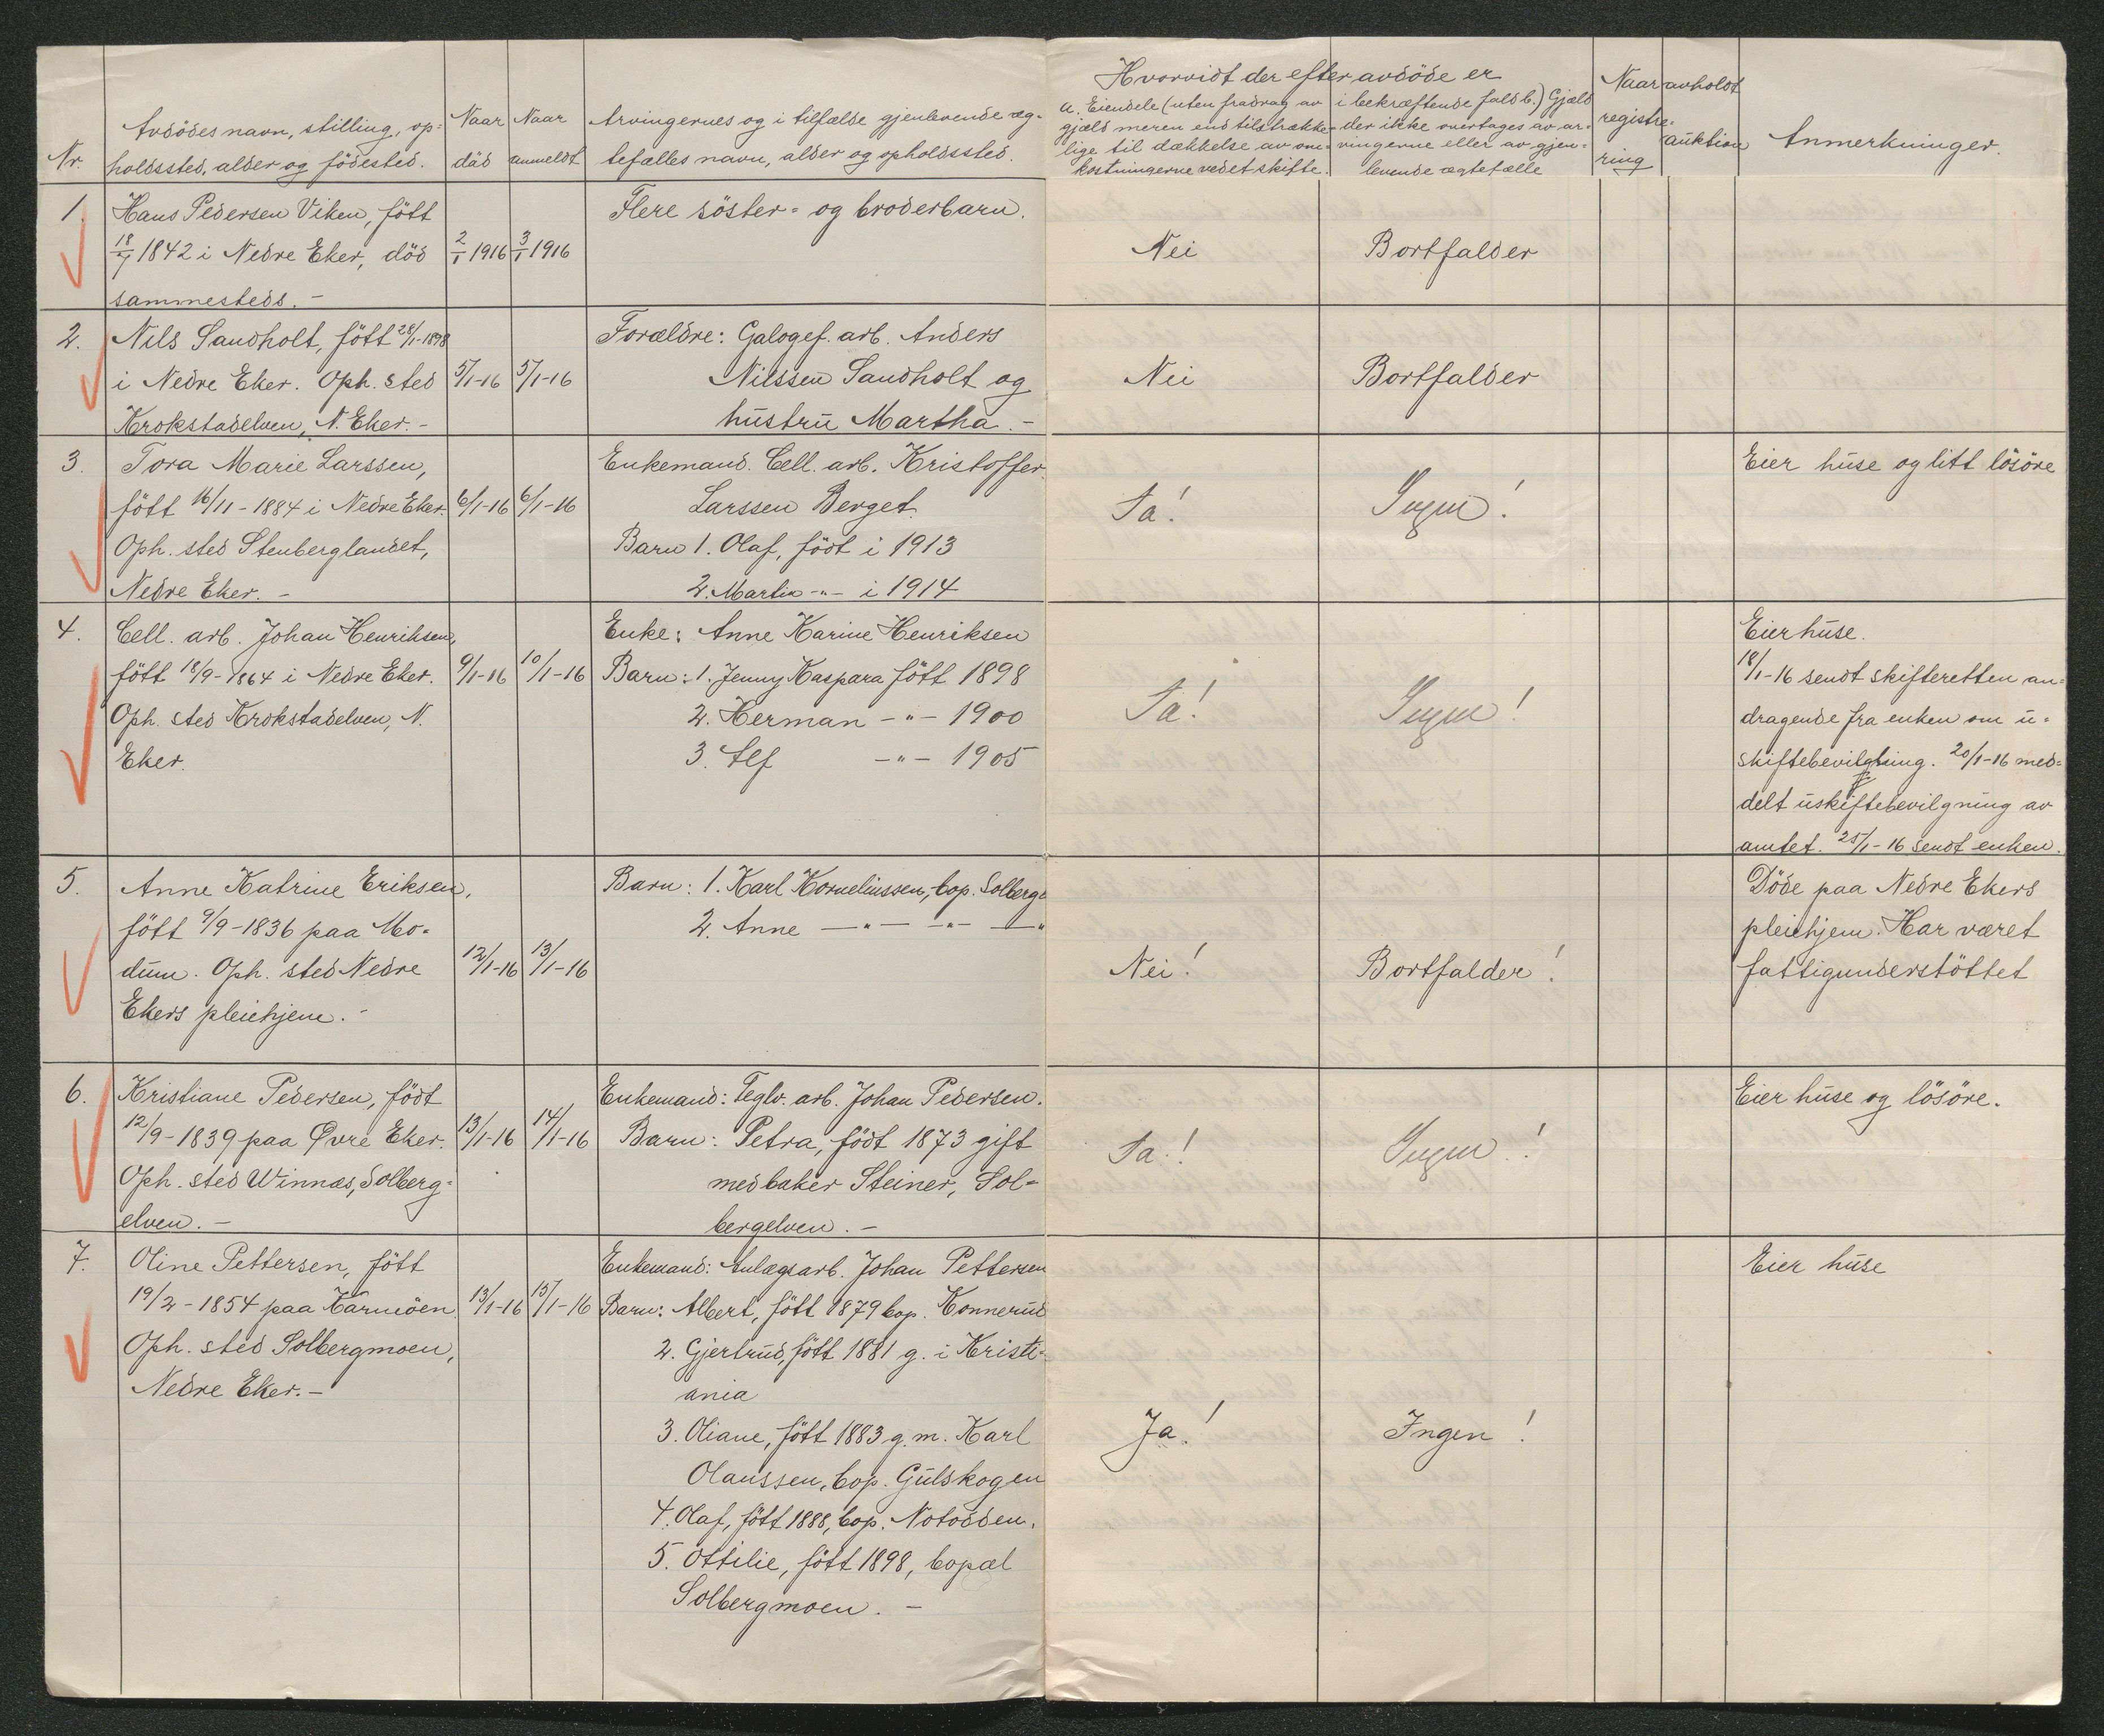 Nr.
Avdödes navn, stilling, op-
holdssted, alder og födested.
Naar
död
Naar
anmeldt
Arvingernes og i tilfælde gjenlevende æg-
tefælles navn, alder og opholdssted.
Hvorvidt der efter avdöde er
a. Eiendele (uten fradrag av
gjæld meren end tilstrække-
lige til dækkelse av om-
kostningerne vedet skifte.
i bekræftende fald b.) Gjæld
der ikke overtages av ar-
vingerne eller av gjen-
levende ægtefælle
Naar avholdt
registre-
ring
auktion
Anmerkninger.
1. Hans Pedersen Viken, fött
18/7 1842 i Nedre Eker, död
sammesteds. -
2/1 1916
3/1 1916
Flere söster- og broderbarn.
Nei
Bortfalder
2. Nils Sandholt, fött 28/1-1898
i Nedre Eker. Oph. sted
Krokstadelven, N. Eker. -
5/1-16
5/1-16
Forældre: Galogef. arb. Anders
Nilssen Sandholt og
hustru Martha. -
Nei
Bortfalder
3. Tora Marie Larssen,
fött 16/11-1884 i Nedre Eker.
Oph. sted Stenberglandet,
Nedre Eker. -
6/1-16
6/1-16
Enkemand. Cell. arb. Kristoffer
Larssen Berget.
Barn 1. Olaf, födt i 1913
2. Martin -"- i 1914
Ja!
Ingen!
Eier huse og litt lösöre
4. Cell. arb. Johan Henriksen,
fött 18/9-1864 i Nedre Eker.
Oph. sted Krokstadelven, N.
Eker.
9/1-16
10/1-16
Enke: Anne Karine Henriksen
Barn: 1. Jenny Kaspara fött 1898
2. Herman -"- 1900
3. Alf -"- 1905
Ja!
Ingen!
Eier huse.
18/1-16 sendt skifteretten an-
dragende fra enken om u-
skiftebevilgning. 20/1-16 med-
delt uskiftebevilgning av
amtet. 25/1-16 sendt enken.
5. Anne Katrine Eriksen,
fött 9/9-1836 paa Mo-
dum. Oph. sted Nedre
Ekers pleiehjem. -
12/1-16
13/1-16
Barn: 1. Karl Korneliussen, bop. Solberg-
2. Anne -"- -"- -"-
Nei!
Bortfalder!
Döde paa Nedre Ekers
pleiehjem. Har været
fattigunderstöttet
6. Kristiane Pedersen, födt
12/9-1839 paa Øvre Eker.
Oph. sted Winnæs, Solberg-
elven. -
13/1-16
14/1-16
Enkemand: Teglv. arb. Johan Pedersen.
Barn: Petra, födt 1873 gift
med baker Steiner, Sol-
bergelven. -
Ja!
Ingen!
Eier huse og lösöre.
7. Oline Pettersen, fött
19/2-1854 paa Karmöen
Oph. sted Solbergmoen,
Nedre Eker. -
13/1-16
15/1-16
Enkemand: Anlægsarb. Johan Pettersen
Barn: Albert, fött 1879 bop. Konnerud
2. Gjertrud, fött 1881 g. i Kristi-
ania
3. Oliane, fött 1883 g. m. Karl
Olaussen, bop. Gulskogen
4. Olaf, fött 1888, bop. Notodden.
5. Ottilie, fött 1898, bopæl
Solbergmoen. -
Ja!
Ingen!
Eier huse